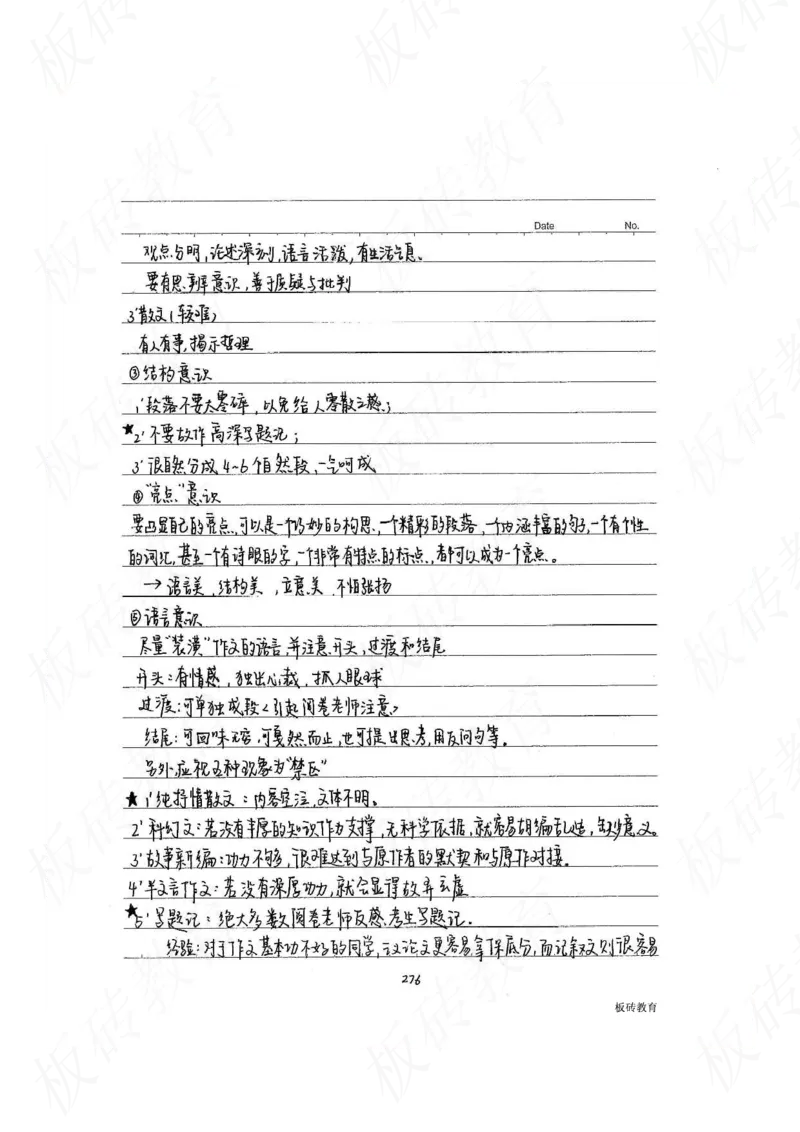 Date No.
观点分明,论述深刻,语言活泼,有生活气息。
要有思辨意识,善于质疑与批判
3'散文(较难)
有人有事,揭示哲理
③结构意识
1'段落不要太零碎,以免给人零散之感;
★2'不要故作高深写题记;
3'很自然分成4~6个自然段,一气呵成
④“亮点”意识
要凸显自己的亮点,可以是一个巧妙的构思,一个精彩的段落,一个内涵丰富的句子,一个有个性
的词汇,甚至一个有诗眼的字,一个非常有特点的标点,都可以成为一个亮点。
→语言美,结构美,立意美 不怕张扬
⑤语言意识
尽量“装潢”作文的语言,并注意开头,过渡和结尾
开头:有情感,独出心裁,抓人眼球
过渡:可单独成段<引起阅卷老师注意>
结尾:可回味无穷,可戛然而止,也可提出思考,用反问句等。
另外,应视五种现象为“禁区”
★1'纯抒情散文:内容空泛,文体不明。
2'科幻文:若没有丰厚的知识作为支撑,无科学依据,就容易胡编乱造,缺少意义。
3'故事新编:功力不够,很难达到与原作者的默契和与原作对接。
4'半文言作文:若没有深厚功力,就会显得故弄玄虚
★5'写题记:绝大多数阅卷老师反感考生写题记.
经验:对于作文基本功不好的同学,议论文更容易拿保底分,而记叙文则很容易
276
板砖教育
板砖教育